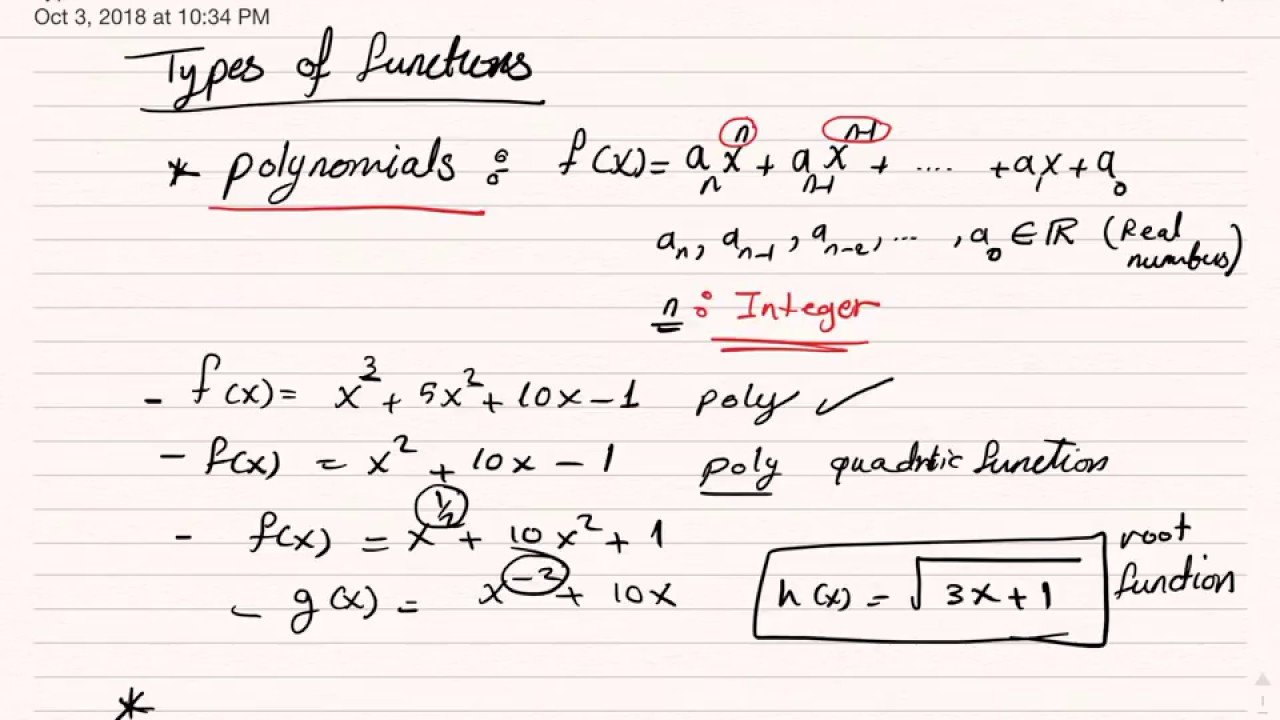 Oct 3, 2018 at 10:34 PM
Types of functions
* polynomials : f(x) = aₙxⁿ + aₙ₋₁xⁿ⁻¹ + .... + a₁x + a₀
aₙ, aₙ₋₁, aₙ₋₂, ... , a₀ ∈ ℝ (Real numbers)
n : Integer
- f(x) = x³ + 5x² + 10x - 1 poly ✓
- f(x) = x² + 10x - 1 poly quadratic function
- f(x) = x^½ + 10x² + 1
- g(x) = x⁻² + 10x
h(x) = √(3x + 1) root function
*